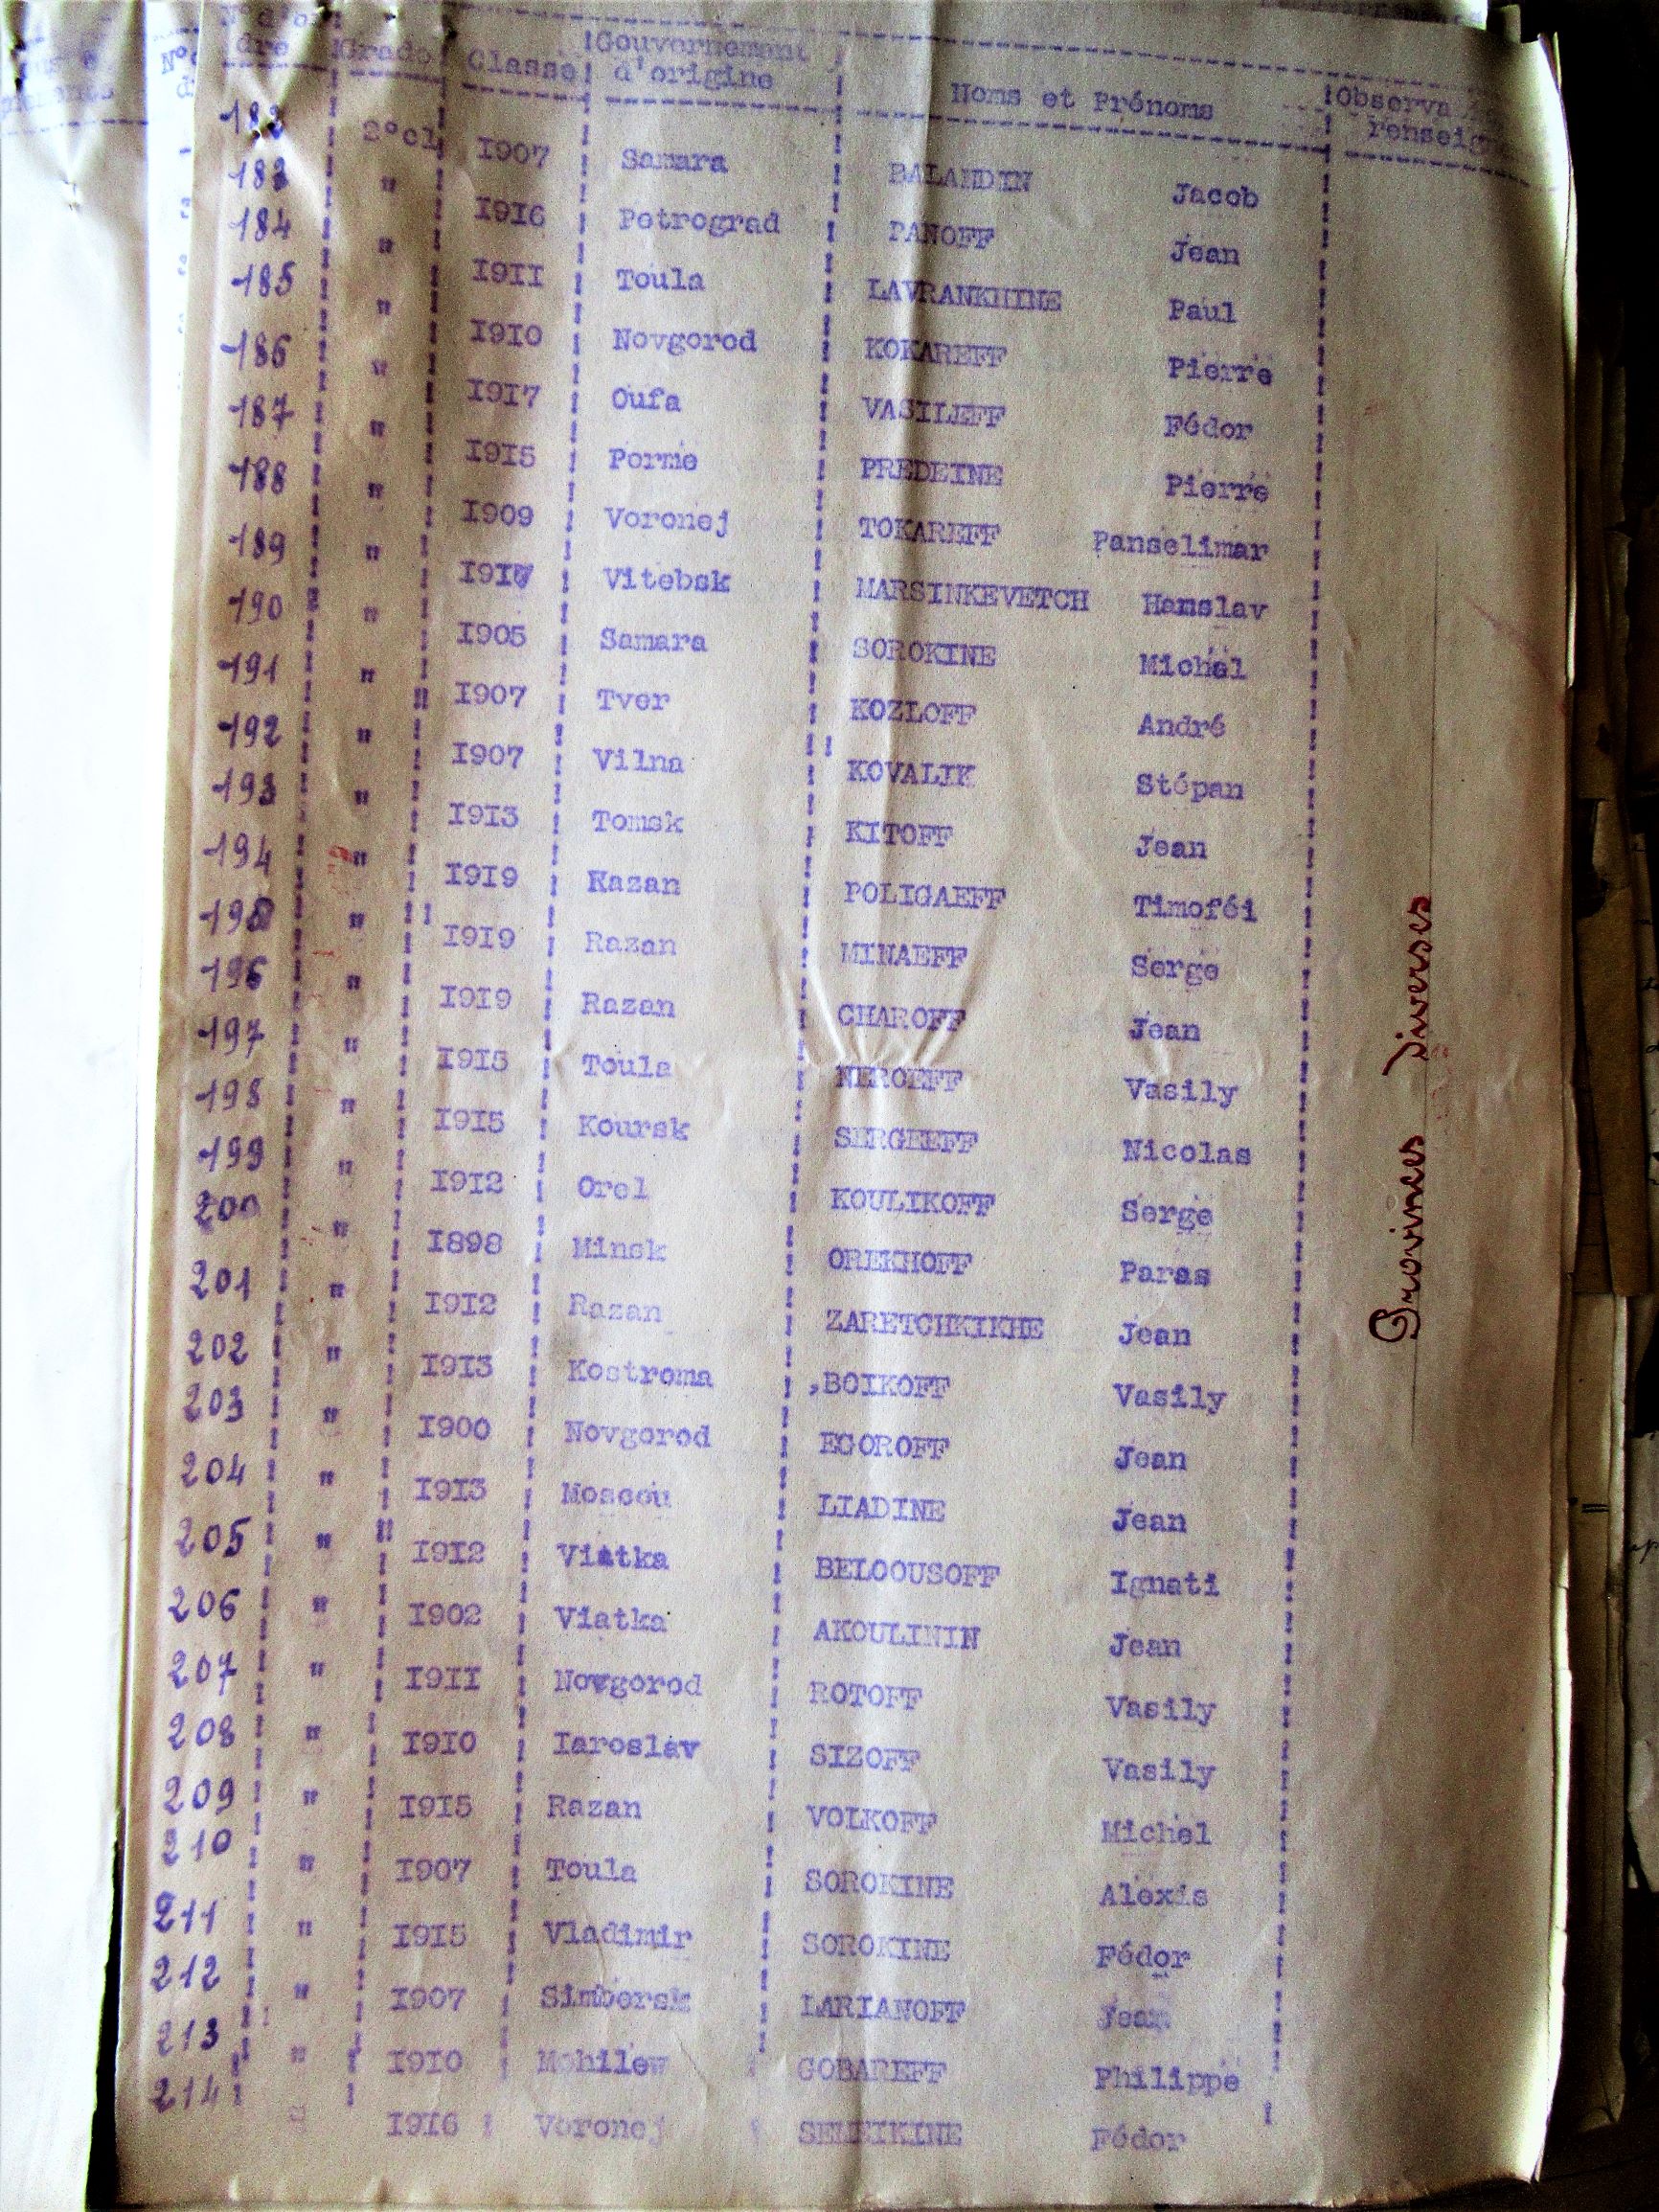 N° d'or- dre Grade Classe Gouvernement d'origine Noms et Prénoms Observa renseig
182 2°cl 1907 Samara BALANDIN Jacob
183 " I9I6 Petrograd PANOFF Jean
184 " I9II Toula LAVRANKHINE Paul
185 " I9I0 Novgorod KOKAREFF Pierre
186 " I9I7 Oufa VASILEFF Fédor
187 " I9I5 Perme PREDEINE Pierre
188 " I909 Voronej TOKAREFF Panselimar
189 " I9I7 Vitebsk MARSINKEVETCH Hanslav
190 " I905 Samara SOROKINE Michel
191 " I907 Tver KOZLOFF André
192 " I907 Vilna KOVALIK Stépan
193 " I9I3 Tomsk KITOFF Jean
194 " I9I9 Kazan POLIGAEFF Timoféi
195 " I9I9 Razan MINAEFF Serge
196 " I9I9 Razan CHAROFF Jean
197 " I9I5 Toula NEROEFF Vasily
198 " I9I5 Koursk SERGEEFF Nicolas
199 " I9I2 Orel KOULIKOFF Serge
200 " I898 Minsk OREKHOFF Paras
201 " I9I2 Razan ZARETCHKIKHE Jean
202 " I9I3 Kostroma ,BOIKOFF Vasily
203 " I900 Novgorod EGOROFF Jean
204 " I9I3 Moscou LIADINE Jean
205 " I9I2 Viatka BELOOUSOFF Ignati
206 " I902 Viatka AKOULININ Jean
207 " I9II Novgorod ROTOFF Vasily
208 " I9I0 Iaroslav SIZOFF Vasily
209 " I9I5 Razan VOLKOFF Michel
210 " I907 Toula SOROKINE Alexis
211 " I9I5 Vladimir SOROKINE Fédor
212 " I907 Simbersk LARIANOFF Jean
213 " I9I0 Mohilew GOBAREFF Philippe
214 " I9I6 Voronej SELEIKINE Fédor
Provinces diverses